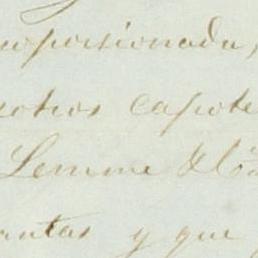 aporsionada,
otros capote
Lemme
antas y que